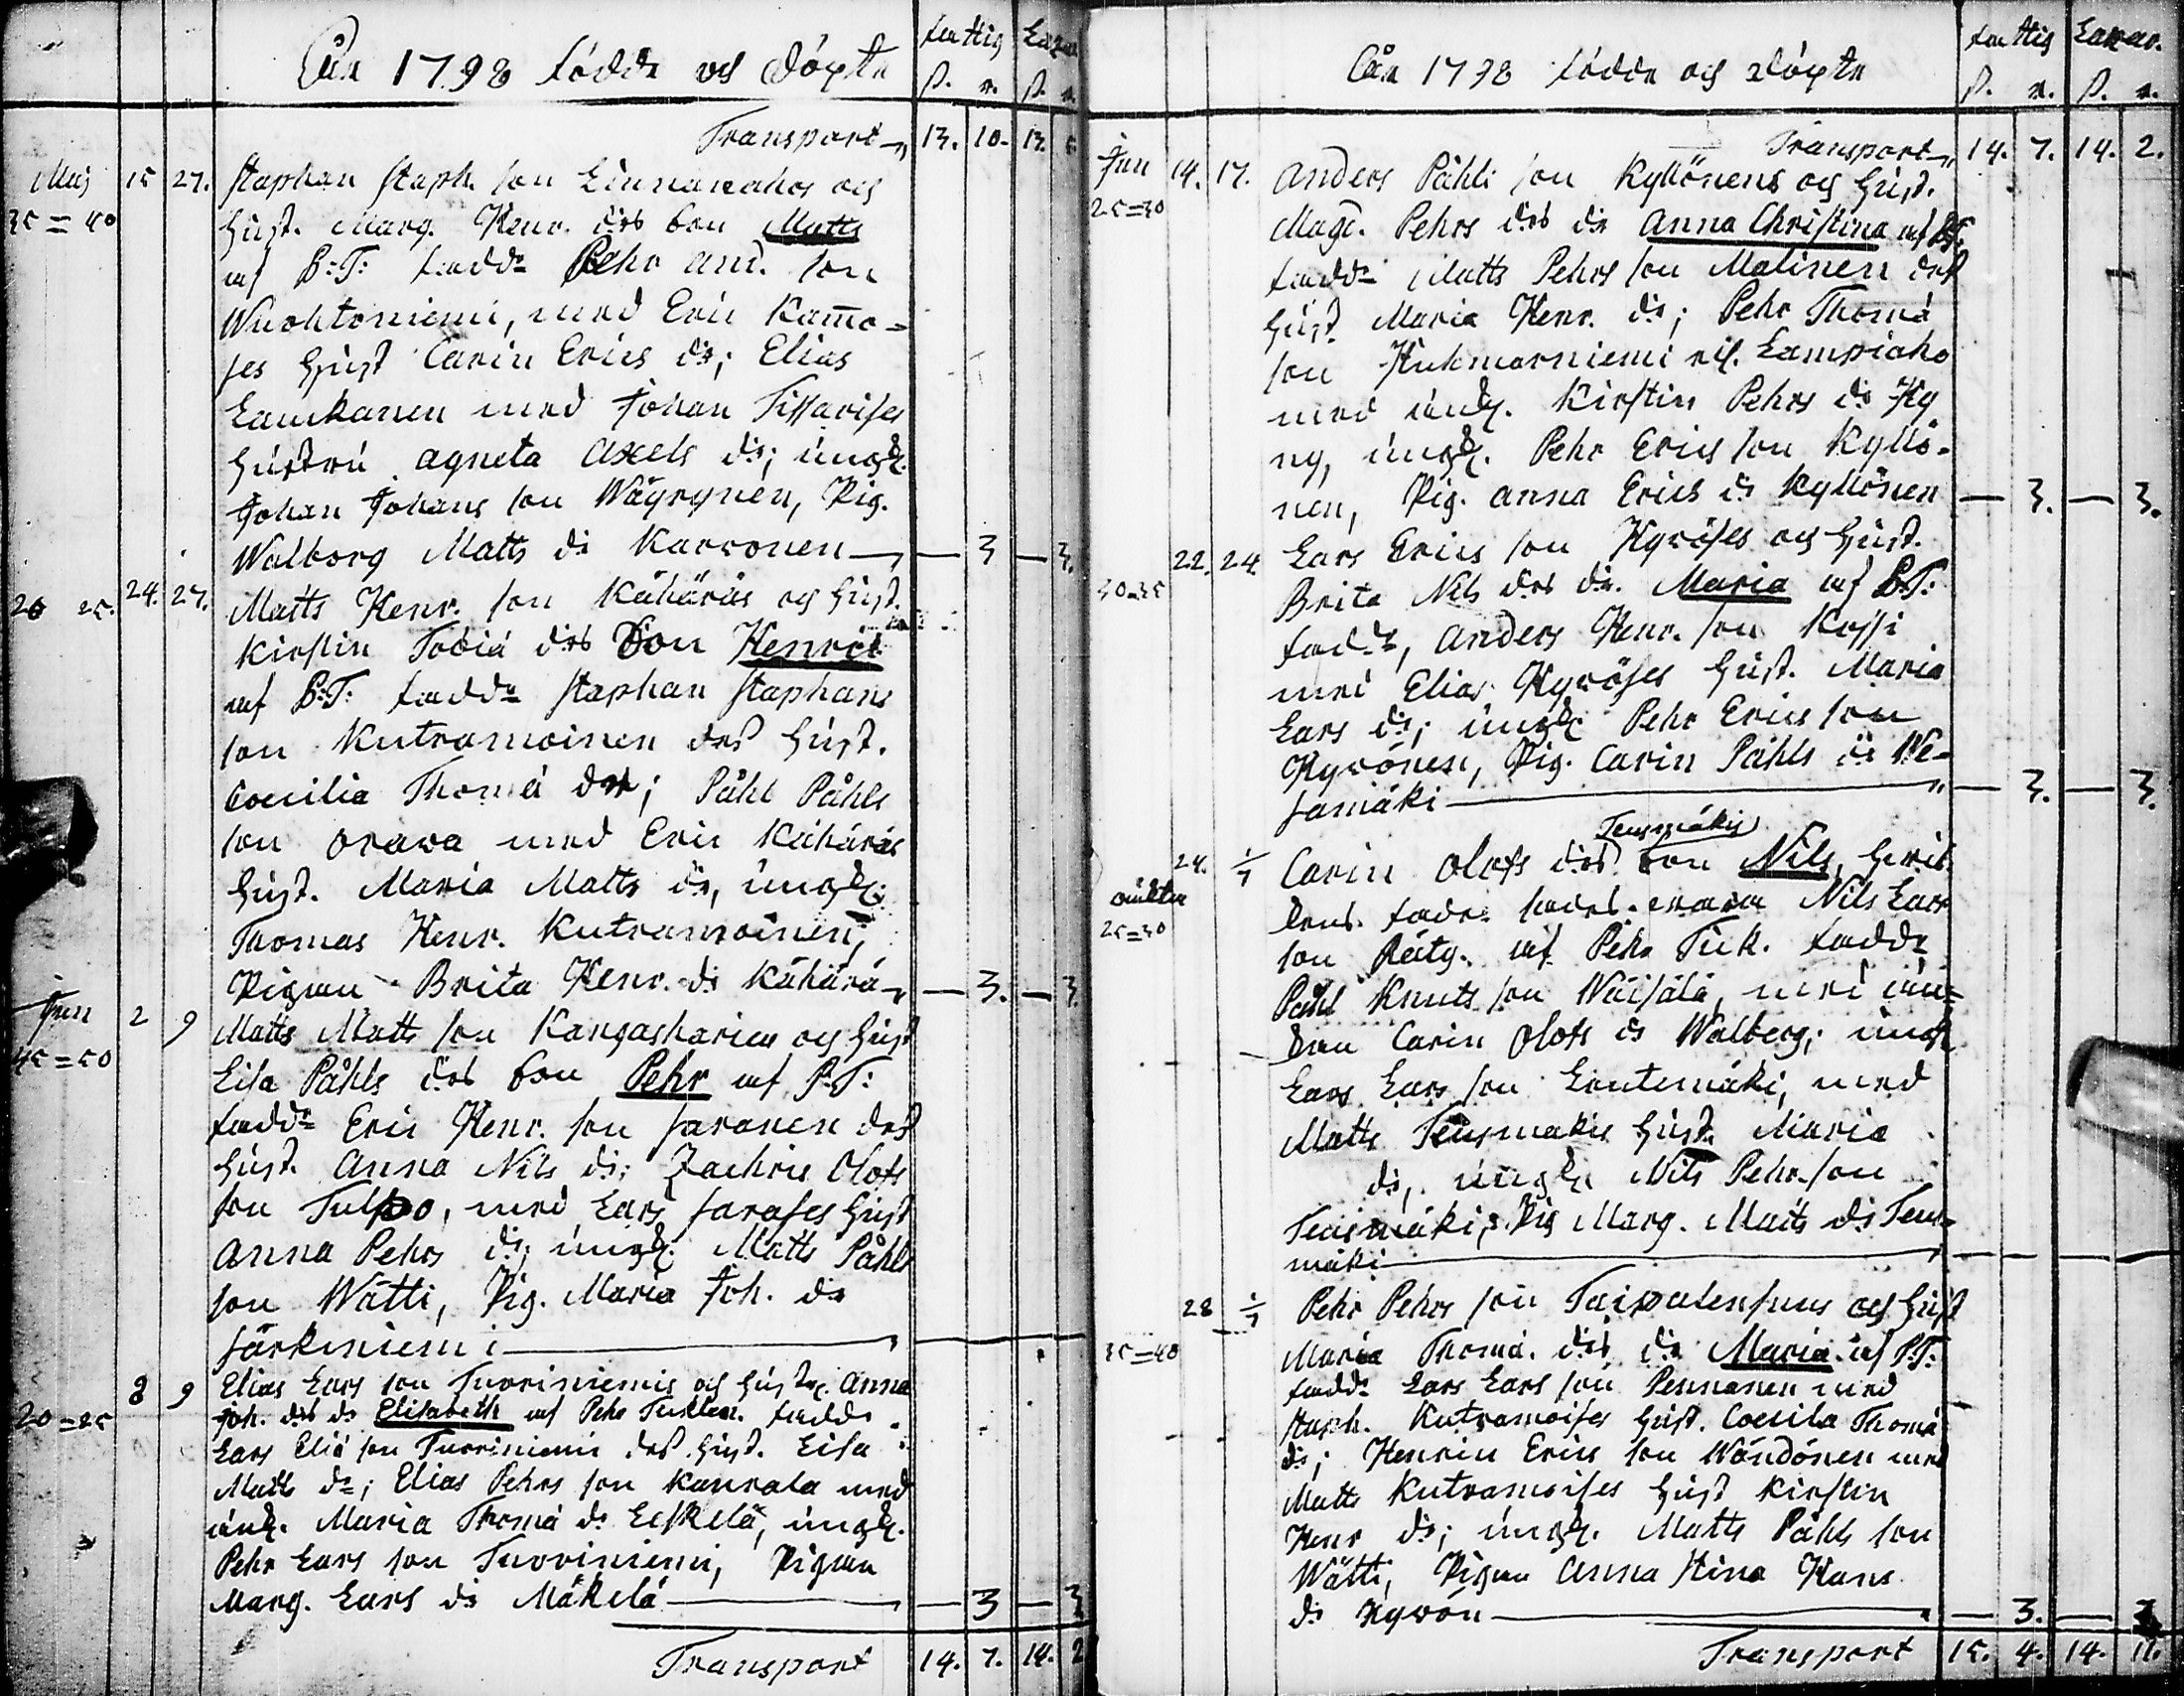 fattig Lazar.
Åhr 1798 födde och döpte
ß. r. ß. r.
Transport 13. 10. 13.
Maj 15 27. Staphan Staph. son Linnanahos och
35=40 Hust. Marg. Henr. drs son Matts
af B:T: fadd. Pehr And. son
Wuohtoniemi, med Eric Kamo=
ses Hust Carin Erics dr; Elias
Laukanen med Johan Tissarises
Hustru Agneta Axels dr; ungk.
Johan Johans son Wäyrynen, Pig.
Walborg Matts dr Karvonen — 3 — 3.
20 25. 24. 27. Matts Henr. son Kähäräs och Hust.
Kirstin Tobiæ drs son Henric
af B:T: fadd. Staphan Staphans
son Kutramoinen des Hust.
Coecilia Thomæ dr; Påhl Påhls
son Orava med Eric Kähäräs
Hust. Maria Matts dr, ungk.
Thomas Henr. Kutramoinen,
Pigan Brita Henr. dr Kähärä — 3. — 3.
Jun 2 9 Matts Matts son Kangasharius och Hust
45=50 Lisa Påhls drs son Pehr af B:T:
fadd. Eric Henr. son Saranen des
Hust. Anna Nils dr; Zachris Olofs
son Tulpo, med Lars Sarases Hust
Anna Pehrs dr; ungk. Matts Påhls
son Wätti, Pig. Maria Joh. dr
Särkiniemi
8 9 Elias Lars son Tuoriniemis och Hust. Anna
20=25 Joh. drs dr Elisabeth af Pehr Ticklen. fadd.
Lars Eliæ son Tuoriniemi des Hust. Lisa
Matts dr; Elias Pehrs son Kaurala med
änk. Maria Thomæ dr Leskelä, ungk.
Pehr Lars son Tuoriniemi, Pigan
Marg. Lars dr Mäkelä — 3 — 3
Transport 14. 7. 14. 2
fattig Lazar.
Åhr 1798 födde och döpte
ß. r. ß. r.
Transport 14. 7. 14. 2.
Jun 14. 17. Anders Påhls son Kyllönens och Hust.
25=30 Magd. Pehrs drs dr Anna Christina af B:T:
fadd. Matts Pehrs son Malinen des
Hust. Maria Henr. dr; Pehr Thomæ
son Huhmarniemi Lampiaho
med änk. Kirstin Pehrs dr Hy
ry, ungk. Pehr Erics son Kyllö-
nen, Pig. Anna Erics dr Kyllönen — 3. — 3.
22. 24. Lars Erics son Hyröses och Hust.
30=35 Brita Nils drs dr. Maria af B:T:
fadd., Anders Henr. son Kossi
med Elias Hyröses Hust. Maria
Lars dr; ungk. Pehr Erics son
Hyrönen, Pig. Carin Påhls dr We-
samäki — 3. — 3.
Teusmäkis
24. 1/7 Carin Olofs drs son Nils,
oäkta
25=30 Nils Lars
son Räty. af Pehr Tick. fadd.
Påhl Knuts son Wäisälä, med än=
kan Carin Olofs dr Walberg; ungk
Lars Lars son Lentemäki, med
Matts Teusmäkis Hust. Maria
dr, ungk. Nils Pehr. son
Teusmäki, Pig Marg. Matts dr Teus-
mäki
28 1/7 Pehr Pehrs son Taipalensuus och Hust
35=40 Maria Thomæ. drs dr Maria. af B:T:
fadd. Lars Lars son Pennanen med
Staph. Kutramoises Hust. Coecilia Thomæ
dr; Henric Erics son Wändönen med
Matts Kutramoises Hust Kirstin
Henr dr; ungk. Matts Påhls son
Wätti, Pigan Anna Stina Hans
dr Hyrön — 3. — 3
Transport 15. 4. 14. 11.